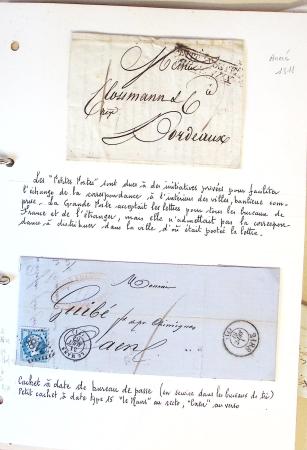 Année
1811
Messieurs
Clossmann & Cie
Bordeaux
Les "Petites Postes" sont dues à des initiatives privées pour faciliter
l'échange de la correspondance à l'intérieur des villes, banlieue com-
prise. La Grande Poste acceptait les lettres pour tous les bureaux de
France et de l'étranger, mais elle n'admettait pas la correspon-
dance à distribuer dans la ville d'où était postée la lettre.
Monsieur
Guibé
Caen
Cachet à date de bureau de passe (en service dans les bureaux de tri)
Petit cachet à date type 15 "le Mans" au recto, "Caen" au verso